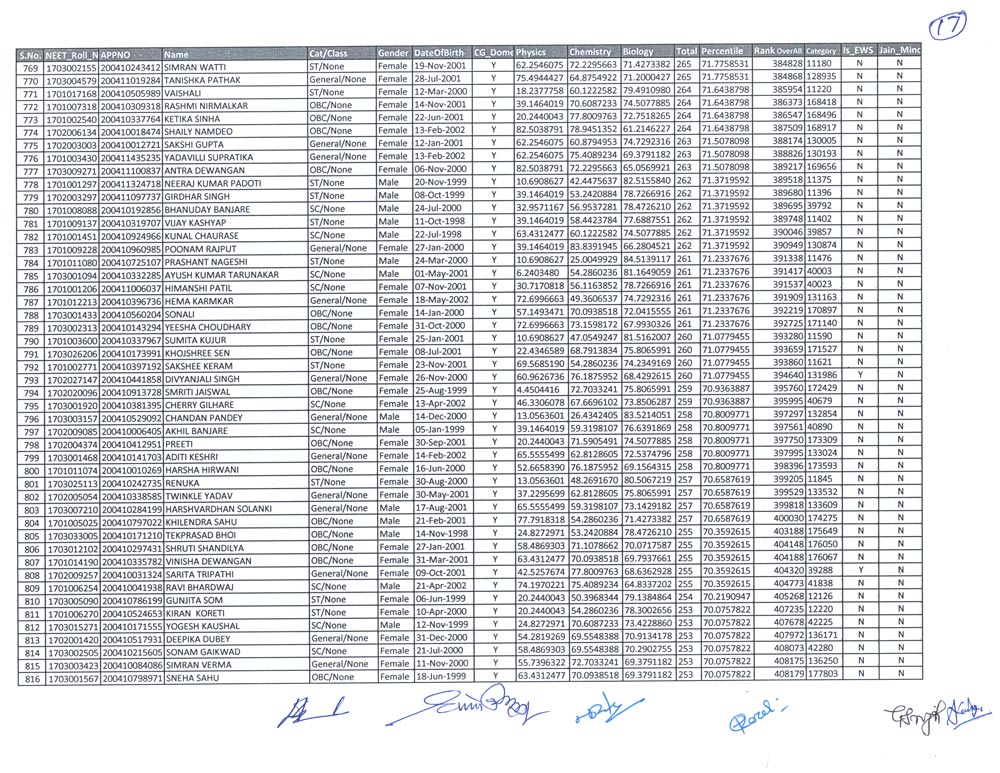 17
S.No. NEET_Roll_N APPNO Name Cat/Class Gender DateOfBirth CG_Dome Physics Chemistry Biology Total Percentile Rank OverAll Category Is_EWS Jain_Minc
769 1703002155 200410243412 SIMRAN WATTI ST/None Female 19-Nov-2001 Y 62.2546075 72.2295663 71.4273382 265 71.7758531 384828 11180 N N
770 1703004579 200411019284 TANISHKA PATHAK General/None Female 28-Jul-2001 Y 75.4944427 64.8754922 71.2000427 265 71.7758531 384868 128935 N N
771 1701017168 200410505989 VAISHALI ST/None Female 12-Mar-2000 Y 18.2377758 60.1222582 79.4910980 264 71.6438798 385954 11220 N N
772 1701007318 200410309318 RASHMI NIRMALKAR OBC/None Female 14-Nov-2001 Y 39.1464019 70.6087233 74.5077885 264 71.6438798 386373 168418 N N
773 1701002540 200410337764 KETIKA SINHA OBC/None Female 22-Jun-2001 Y 20.2440043 77.8009763 72.7518265 264 71.6438798 386547 168496 N N
774 1702006134 200410018474 SHAILY NAMDEO OBC/None Female 13-Feb-2002 Y 82.5038791 78.9451352 61.2146227 264 71.6438798 387509 168917 N N
775 1702003003 200410012721 SAKSHI GUPTA General/None Female 12-Jan-2001 Y 62.2546075 60.8794953 74.7292316 263 71.5078098 388174 130005 N N
776 1701003430 200411435235 YADAVILLI SUPRATIKA General/None Female 13-Feb-2002 Y 62.2546075 75.4089234 69.3791182 263 71.5078098 388826 130193 N N
777 1703009271 200411100837 ANTRA DEWANGAN OBC/None Female 06-Nov-2000 Y 82.5038791 72.2295663 65.0569921 263 71.5078098 389217 169656 N N
778 1701001297 200411324718 NEERAJ KUMAR PADOTI ST/None Male 20-Nov-1999 Y 10.6908627 42.4475637 82.5155840 262 71.3719592 389518 11375 N N
779 1702003297 200411097737 GIRDHAR SINGH ST/None Male 08-Oct-1999 Y 39.1464019 53.2420884 78.7266916 262 71.3719592 389680 11396 N N
780 1701008088 200410192856 BHANUDAY BANJARE SC/None Male 24-Jul-2000 Y 32.9571167 56.9537281 78.4726210 262 71.3719592 389695 39792 N N
781 1701009137 200410319707 VIJAY KASHYAP ST/None Male 11-Oct-1998 Y 39.1464019 58.4423784 77.6887551 262 71.3719592 389748 11402 N N
782 1701001451 200410924966 KUNAL CHAURASE SC/None Male 22-Jul-1998 Y 63.4312477 60.1222582 74.5077885 262 71.3719592 390046 39857 N N
783 1701009228 200410960985 POONAM RAJPUT General/None Female 27-Jan-2000 Y 39.1464019 83.8391945 66.2804521 262 71.3719592 390949 130874 N N
784 1701011080 200410725107 PRASHANT NAGESHI ST/None Male 24-Mar-2000 Y 10.6908627 25.0049929 84.5139117 261 71.2337676 391338 11476 N N
785 1703001094 200410332285 AYUSH KUMAR TARUNAKAR SC/None Male 01-May-2001 Y 6.2403480 54.2860236 81.1649059 261 71.2337676 391417 40003 N N
786 1701001206 200411006037 HIMANSHI PATIL SC/None Female 07-Nov-2001 Y 30.7170818 56.1163852 78.7266916 261 71.2337676 391537 40023 N N
787 1701012213 200410396736 HEMA KARMKAR General/None Female 18-May-2002 Y 72.6996663 49.3606537 74.7292316 261 71.2337676 391909 131163 N N
788 1703001433 200410560204 SONALI OBC/None Female 14-Jan-2000 Y 57.1493471 70.0938518 72.0415555 261 71.2337676 392219 170897 N N
789 1703002313 200410143294 YEESHA CHOUDHARY OBC/None Female 31-Oct-2000 Y 72.6996663 73.1598172 67.9930326 261 71.2337676 392725 171140 N N
790 1701003600 200410337967 SUMITA KUJUR ST/None Female 25-Jan-2001 Y 10.6908627 47.0549247 81.5162007 260 71.0779455 393280 11590 N N
791 1703026206 200410173991 KHOJSHREE SEN OBC/None Female 08-Jul-2001 Y 22.4346589 68.7913834 75.8065991 260 71.0779455 393659 171527 N N
792 1701002771 200410397192 SAKSHEE KERAM ST/None Female 23-Nov-2001 Y 69.5685190 54.2860236 74.2349169 260 71.0779455 393860 11621 N N
793 1702027147 200410441858 DIVYANJALI SINGH General/None Female 26-Nov-2000 Y 60.9626736 76.1875952 68.4292615 260 71.0779455 394640 131986 Y N
794 1702020096 200410913728 SMRITI JAISWAL OBC/None Female 25-Aug-1999 Y 4.4504416 72.7033241 75.8065991 259 70.9363887 395760 172429 N N
795 1703001920 200410381395 CHERRY GILHARE SC/None Female 13-Apr-2002 Y 46.3306078 67.6696102 73.8506287 259 70.9363887 395995 40679 N N
796 1703003157 200410529092 CHANDAN PANDEY General/None Male 14-Dec-2000 Y 13.0563601 26.4342405 83.5214051 258 70.8009771 397297 132854 N N
797 1702009085 200410006405 AKHIL BANJARE SC/None Male 05-Jan-1999 Y 39.1464019 59.3198107 76.6391869 258 70.8009771 397561 40890 N N
798 1702004374 200410412951 PREETI OBC/None Female 30-Sep-2001 Y 20.2440043 71.5905491 74.5077885 258 70.8009771 397750 173309 N N
799 1703001468 200410141703 ADITI KESHRI General/None Female 14-Feb-2002 Y 65.5555499 62.8128605 72.5374796 258 70.8009771 397995 133024 N N
800 1701011074 200410010269 HARSHA HIRWANI OBC/None Female 16-Jun-2000 Y 52.6658390 76.1875952 69.1564315 258 70.8009771 398396 173593 N N
801 1703025113 200410242735 RENUKA ST/None Female 30-Aug-2000 Y 13.0563601 48.2691670 80.5067219 257 70.6587619 399205 11845 N N
802 1702005054 200410338585 TWINKLE YADAV General/None Female 30-May-2001 Y 37.2295699 62.8128605 75.8065991 257 70.6587619 399529 133532 N N
803 1703007210 200410284199 HARSHVARDHAN SOLANKI General/None Male 17-Aug-2001 Y 65.5555499 59.3198107 73.1429182 257 70.6587619 399818 133609 N N
804 1701005025 200410797022 KHILENDRA SAHU OBC/None Male 21-Feb-2001 Y 77.7918318 54.2860236 71.4273382 257 70.6587619 400030 174275 N N
805 1703033005 200410171210 TEKPRASAD BHOI OBC/None Male 14-Nov-1998 Y 24.8272971 53.2420884 78.4726210 255 70.3592615 403188 175649 N N
806 1703012102 200410297431 SHRUTI SHANDILYA OBC/None Female 27-Jan-2001 Y 58.4869303 71.1078662 70.0717587 255 70.3592615 404148 176050 N N
807 1701014190 200410335782 VINISHA DEWANGAN OBC/None Female 31-Mar-2001 Y 63.4312477 70.0938518 69.7937661 255 70.3592615 404188 176067 N N
808 1702009257 200410031324 SARITA TRIPATHI General/None Female 09-Oct-2001 Y 42.5257674 77.8009763 68.6362928 255 70.3592615 404320 39288 Y N
809 1701006254 200410041938 RAVI BHARDWAJ SC/None Male 21-Apr-2002 Y 74.1970221 75.4089234 64.8337202 255 70.3592615 404773 41838 N N
810 1703005090 200410786199 GUNJITA SOM ST/None Female 06-Jun-1999 Y 20.2440043 50.3968344 79.1384864 254 70.2190947 405268 12126 N N
811 1701006270 200410524653 KIRAN KORETI ST/None Female 10-Apr-2000 Y 20.2440043 54.2860236 78.3002656 253 70.0757822 407235 12220 N N
812 1703015271 200410171555 YOGESH KAUSHAL SC/None Male 12-Nov-1999 Y 24.8272971 70.6087233 73.4228860 253 70.0757822 407678 42225 N N
813 1702001420 200410517931 DEEPIKA DUBEY General/None Female 31-Dec-2000 Y 54.2819269 69.5548388 70.9134178 253 70.0757822 407972 136171 N N
814 1703002505 200410215605 SONAM GAIKWAD SC/None Female 21-Jul-2000 Y 58.4869303 69.5548388 70.2902755 253 70.0757822 408073 42280 N N
815 1703003423 200410084086 SIMRAN VERMA General/None Female 11-Nov-2000 Y 55.7396322 72.7033241 69.3791182 253 70.0757822 408175 136250 N N
816 1703001567 200410798971 SNEHA SAHU OBC/None Female 18-Jun-1999 Y 63.4312477 70.0938518 69.3791182 253 70.0757822 408179 177803 N N